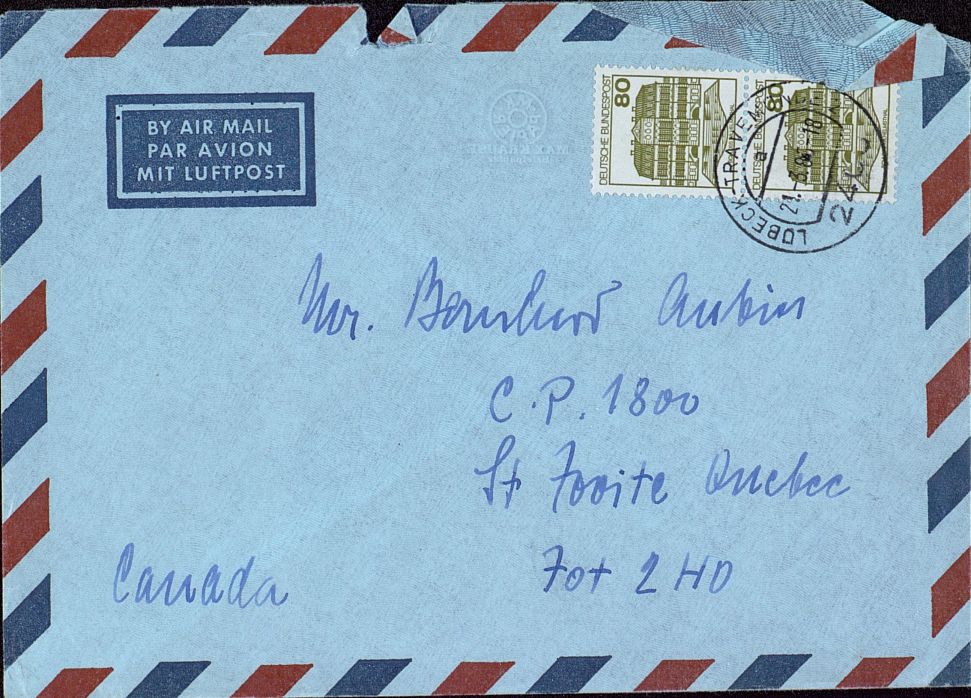 BY AIR MAIL
PAR AVION
MIT LUFTPOST
80
DEUTSCHE BUNDESPOST
80
DEUTSCHE BUNDESPOST
LÜBECK-TRAVEM
a
21.-6.
24
Mr. Bernhard Aubin
C.P. 1800
St Jovite Quebec
Jot 2 HO
Canada